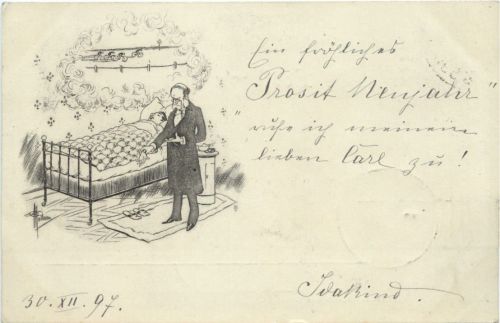 Ein fröhliches
"Prosit Neujahr"
rufe ich meinem
lieben Carl zu!
30. XII. 97.
Idakind.